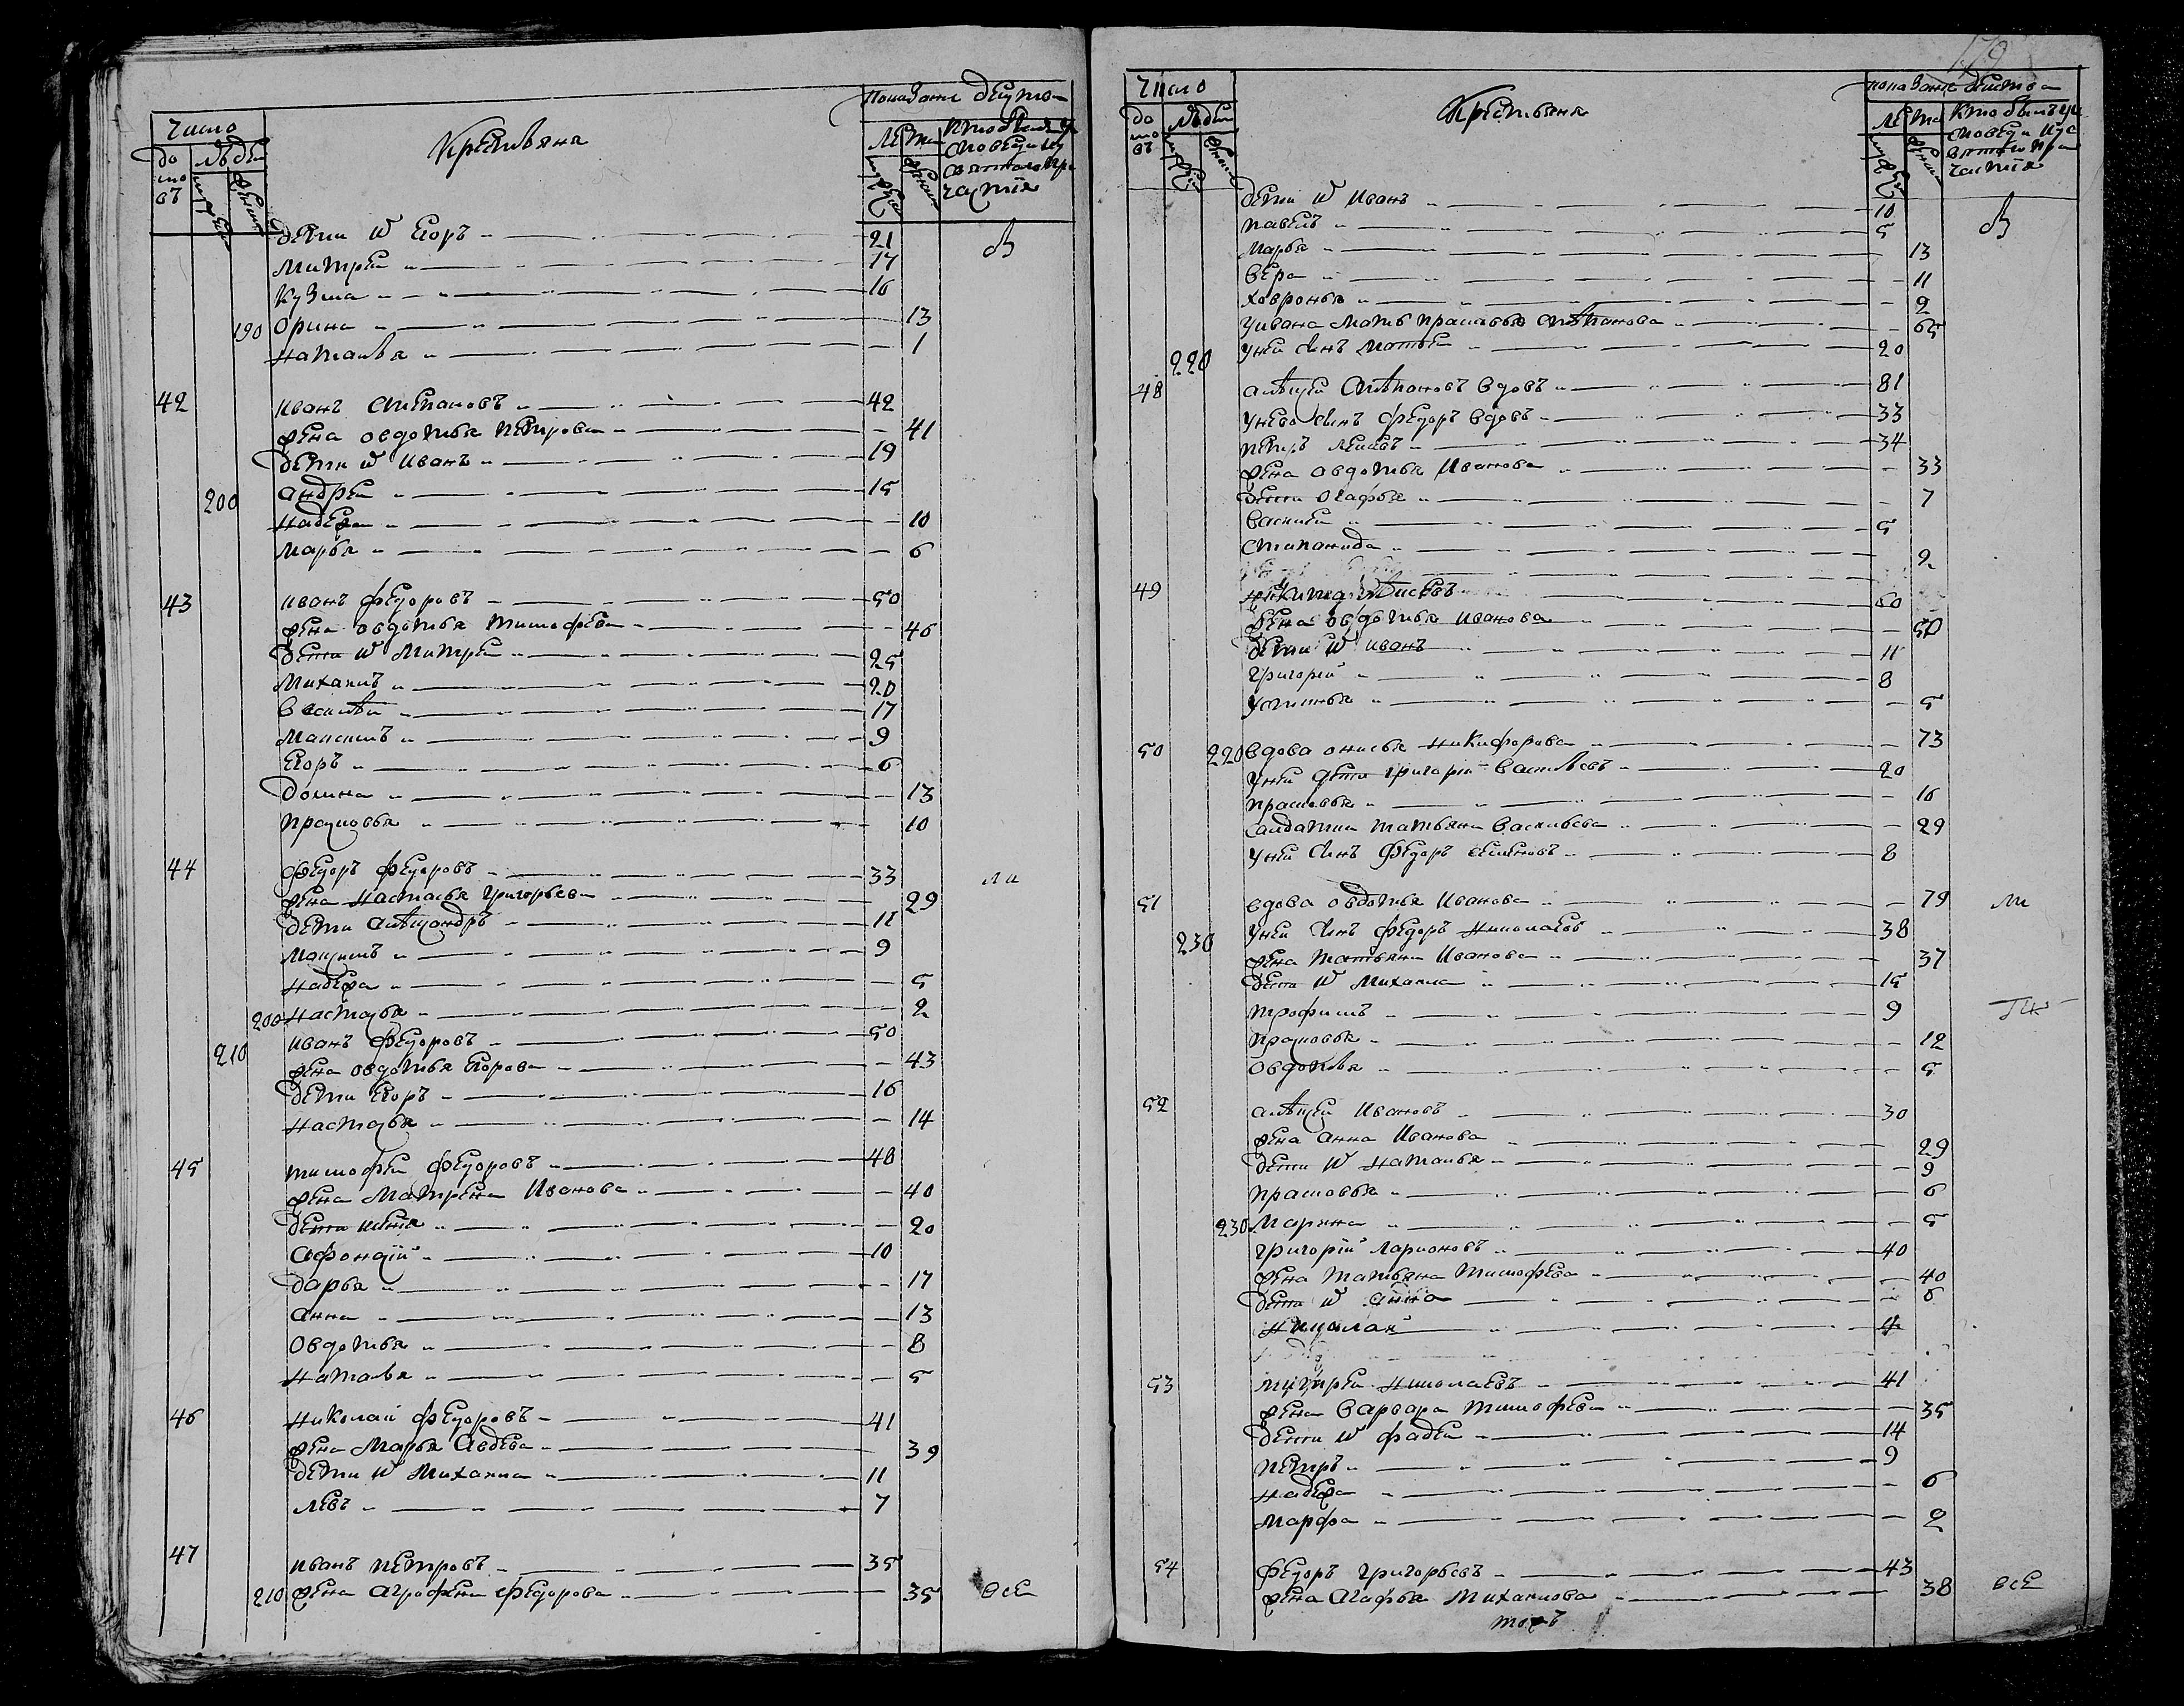 Число
Крестьяне
Показание действа
до
мо
въ
людей
мужеск
женск
Лета
мужеска
женска
кто былъ у
исповеди и у
святаго при
частия
дети их Егоръ 21
Митрей 17
Кузма 16
190 Орина 13
Наталья 1
42 Иванъ Степановъ 42
жена овдотья Петрова 41
дети их Иванъ 19
200 андрей 15
надежа 10
марья 6
43 иванъ федоровъ 50
жена овдотья тимофева 46
дети их Митрей 25
Михаилъ 20
Василей 17
Максимъ 9
Егоръ 6
домна 13
прасковья 10
44 федоръ федоровъ 33
жена настасья григорьева 29
дети александръ 11
Максимъ 9
надежа 5
200 Настасья 2
210 иванъ федоровъ 50
жена овдотья Егорова 43
дети Егоръ 16
настасья 14
45 тимофей федоровъ 48
жена Матрена Иванова 40
дети 20
Афонасiй 10
дарья 17
анна 13
овдотья 8
наталья 5
46 николай федоровъ 41
жена Марья Авдева 39
дети их Михаила 11
левъ 7
47 иванъ петровъ 35
210 жена аграфена федорова 35 все
179
Число
Крестьяне
показание действа
до
мо
въ
людей
Лета
кто былъ у ис
поведи и у с
вятаго при
частiя
дети их Иванъ 10
павелъ 5
марья 13
вера 11
ховронья 2
у ивана мать прасковья степанова 65
220 у ней сынъ матвей 20
48 алексей степановъ вдовъ 81
у нево сынъ федоръ вдовъ 33
петръ 34
жена овдотья Иванова 33
дети огафья 7
василей 5
степанида 2
49 никита 60
жена овдотья иванова 50
дети их иванъ 11
григорей 8
устинья 5
50 220 вдова онисья никифорова 73
у ней дети григорiй васильевъ 20
прасковья 16
салдатка татьяна васильева 29
у ней сынъ федоръ семеновъ 8
51 вдова овдотья Иванова 79
230 у ней сынъ федоръ николаевъ 38
жена татьяна Иванова 37
дети их Михаила 15
трофимъ 9
прасковья 12
овдотья 5
52 алексей Ивановъ 30
жена анна Иванова 29
дети их наталья 9
прасковья 6
230 марина 5
григорiй ларионовъ 40
жена татьяна тимофева 40
дети их анна 6
николай 4
53 николаевъ 41
жена варвара тимофева 35
дети их фадей 14
петръ 9
надежа 6
марфа 2
54 федоръ григорьевъ 43
жена агафья михаилова 38 все